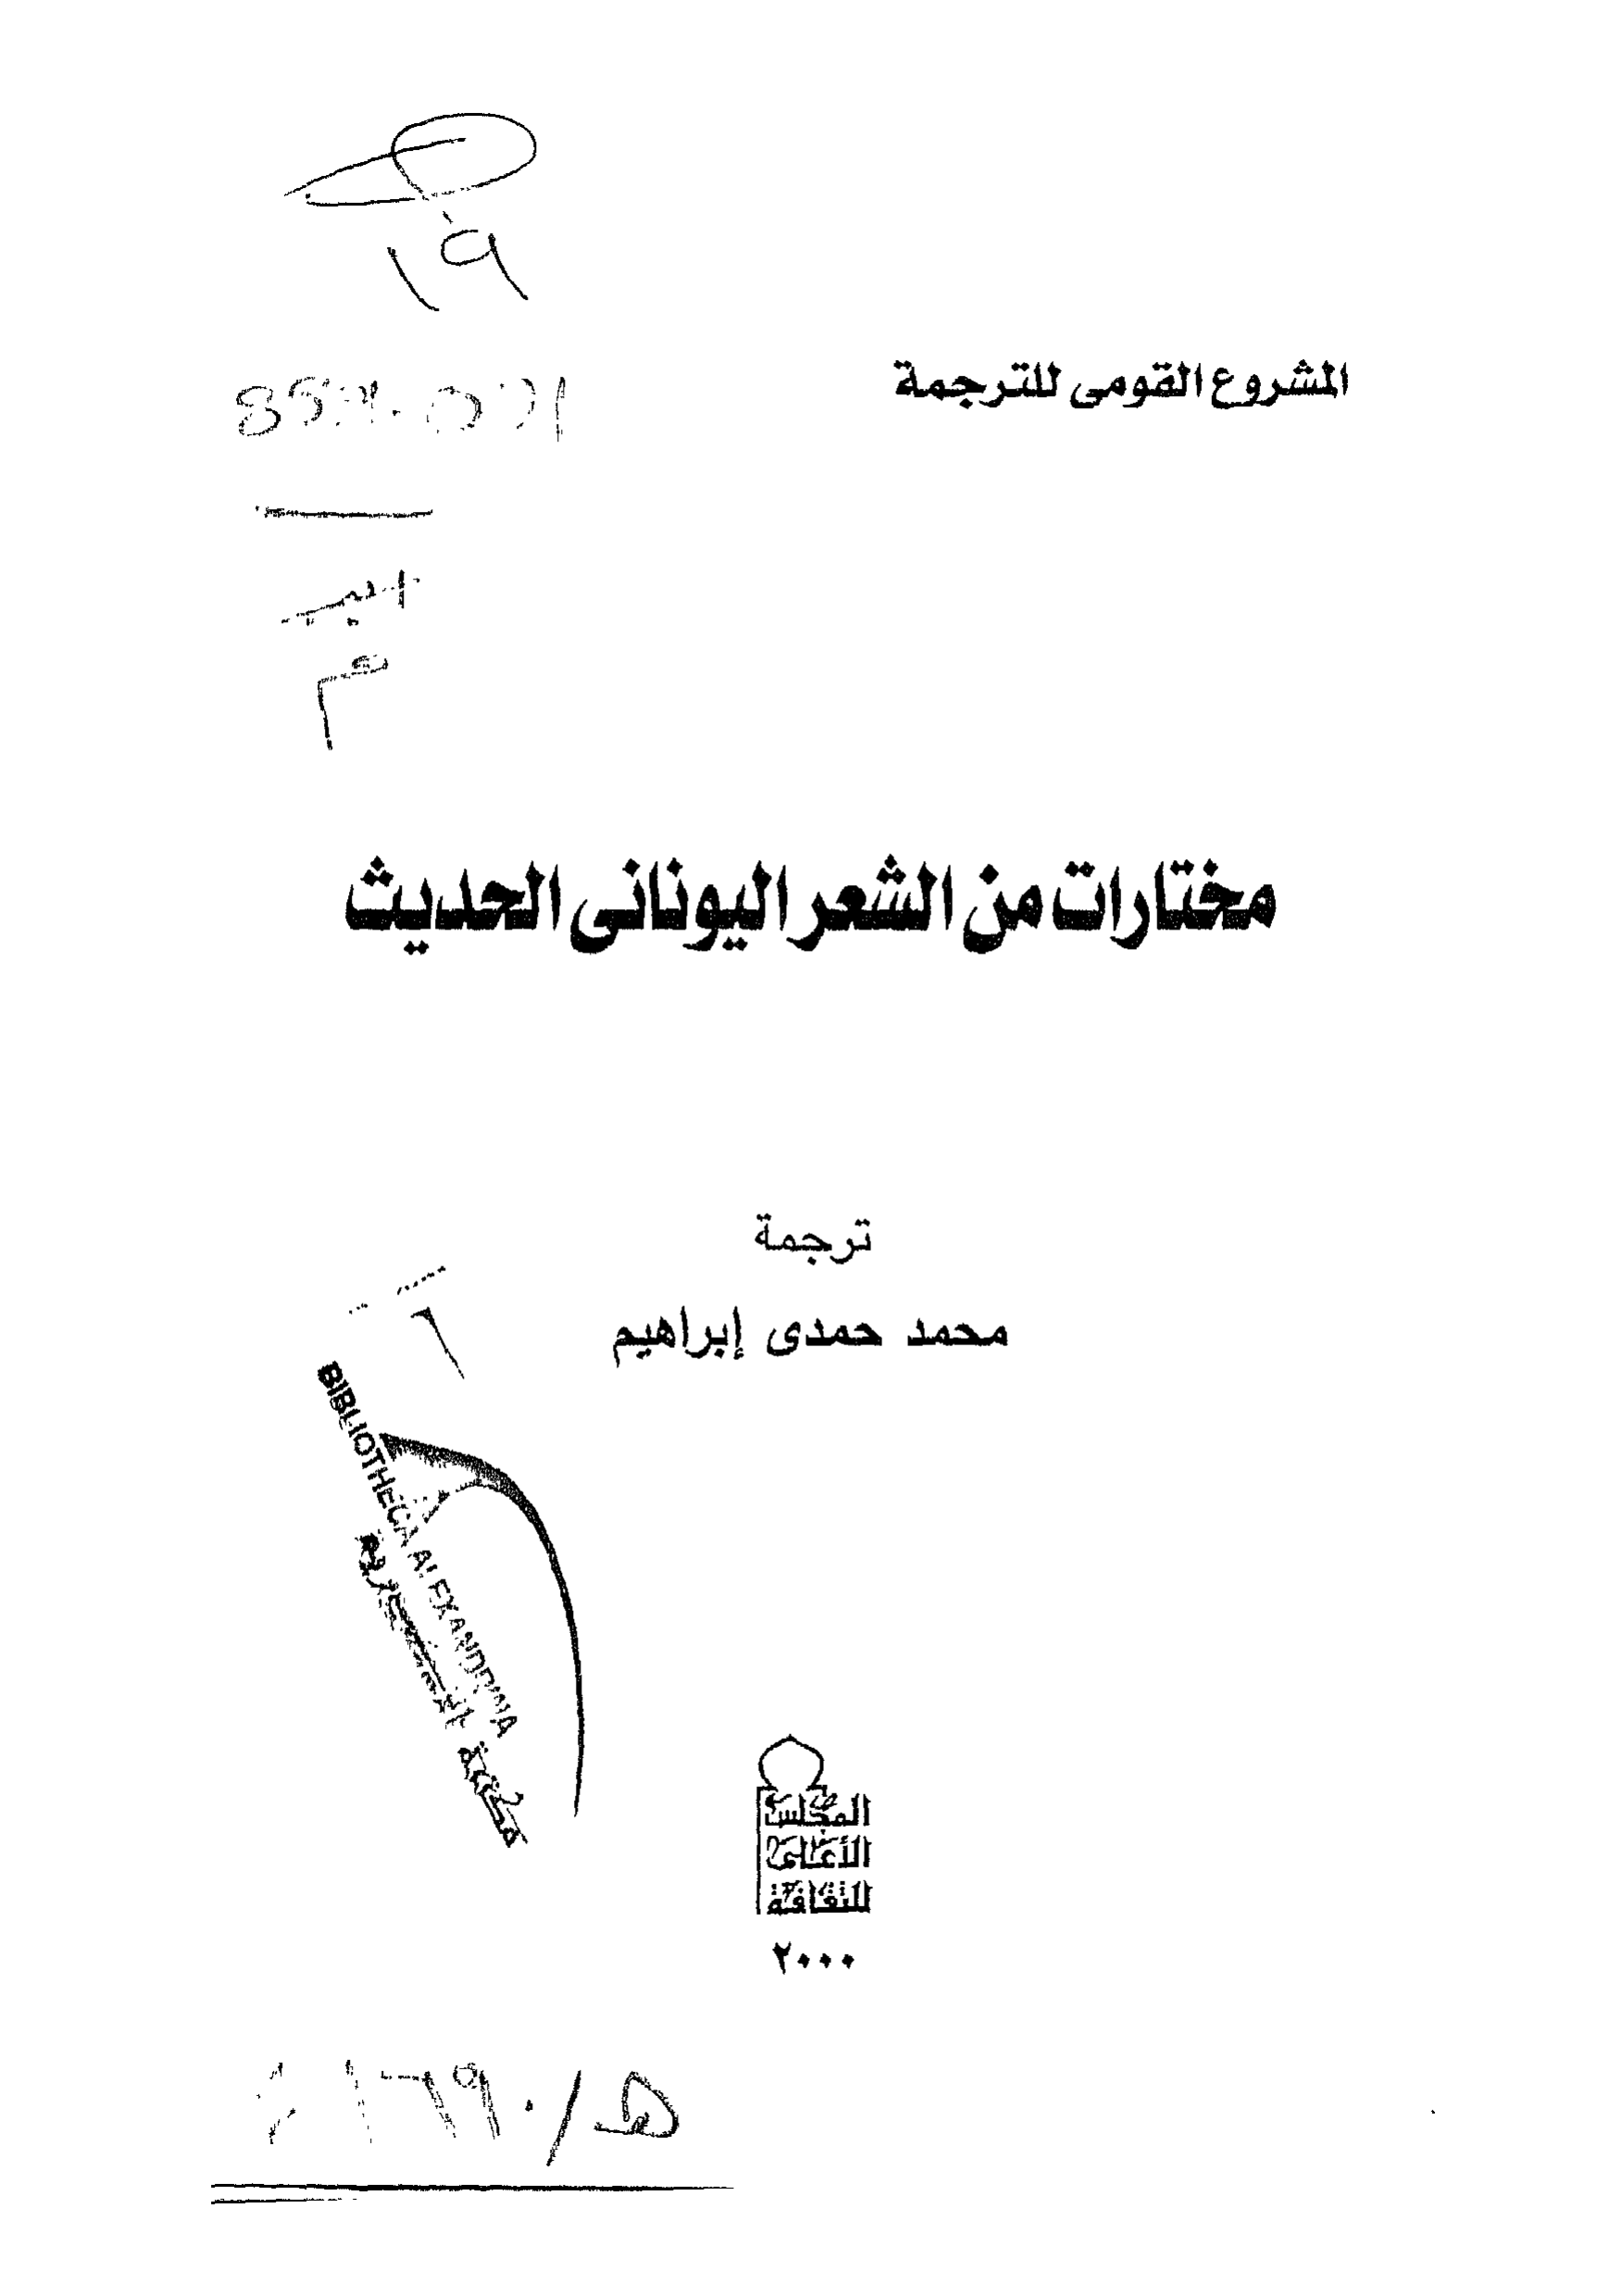 ١٩
المشروع القومى للترجمة
مختارات من الشعر اليونانى الحديث
ترجمة
محمد حمدى إبراهيم
BIBLIOTHECA ALEXANDRINA
مكتبة الإسكندرية
المجلس
الأعلى
للثقافة
٢٠٠٠